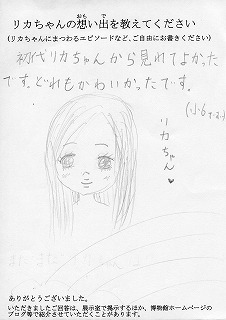 リカちゃんの想い出を教えてください
(リカちゃんにまつわるエピソードなど、ご自由にお書きください)
初代リカちゃんから見れてよかった
です。どれもかわいかったです。
(小6
リカちゃん♥
ありがとうございました。
いただきましたご回答は、展示室で掲示するほか、博物館ホームページの
ブログ等で紹介させていただくことがあります。